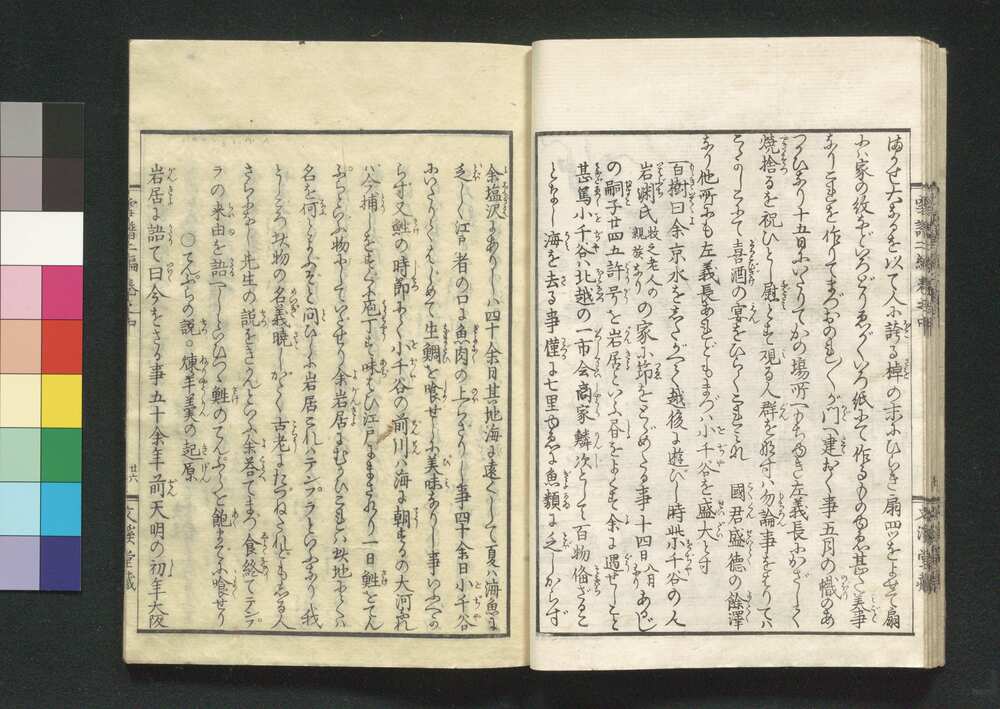 ほそき大なるを以て人に誇る棹の末にひらき扇四ツをよせて扇
ハ家の紋などいろどりゑがくいろ紙にて作るものゆゑ甚だ美事
なりこれを作りてまづおのれ〱が門へ建おく事五月の幟のあ
つかひなり十五日にいたりてかの場所へもちゆき左義長にかざしらく
焼捨るを祝ひとし慰とす観る人群をなす八勿論事をはりてハ
こゝかしこにて喜酒の宴をひらくこれみな 國君盛徳の餘澤
なり他所にも左義長あれどもまづハ小千谷を盛大とす
百樹曰余京水をしたがへて越後に遊びし時此小千谷の人
岩渕氏 牧之老人の親族なり の家に節をとゞめたる事十四日 八月 あるじ
の嗣子廿四五許号を岩居といふ書をよくす余に遇せしこと
甚篤小千谷ハ北越の一市会商家鱗次として百物備ざるこ
となし海を去る事僅に七里ゆゑに魚類に乏しからず
余塩沢にありしハ四十余日其地海に遠くして夏ハ海魚に
乏しく江戸者の口に魚肉の上らざりし事四十余日小千谷
にいたりてはじめて生鯛を喰せしに美味なりし事いふべか
らず又鮏の時節にて小千谷の前川ハ海に朝するの大河なれ
ハ今捕しをすぐに庖丁す味ひ江戸にまされり一日鮏をてん
ぷらといふ物にしていだせり余岩居にむかひこれハ此地にては
名を何とよぶぞと問ひしに岩居これハテンプラといふなり我
としごろ此物の名義暁しがたく古老にたづねたれどもしる人
さらになし先生の説をきかんといふ余答てまづ食終てテンプ
ラの来由を語べしといひつゝ鮏のてんぷらを飽まで喰せり
○てんぷらの説。煉羊羹の起原
岩居に語て曰今をさる事五十余年前天明の初年大阪
雪譜二編巻之中
廿六
文溪堂藏